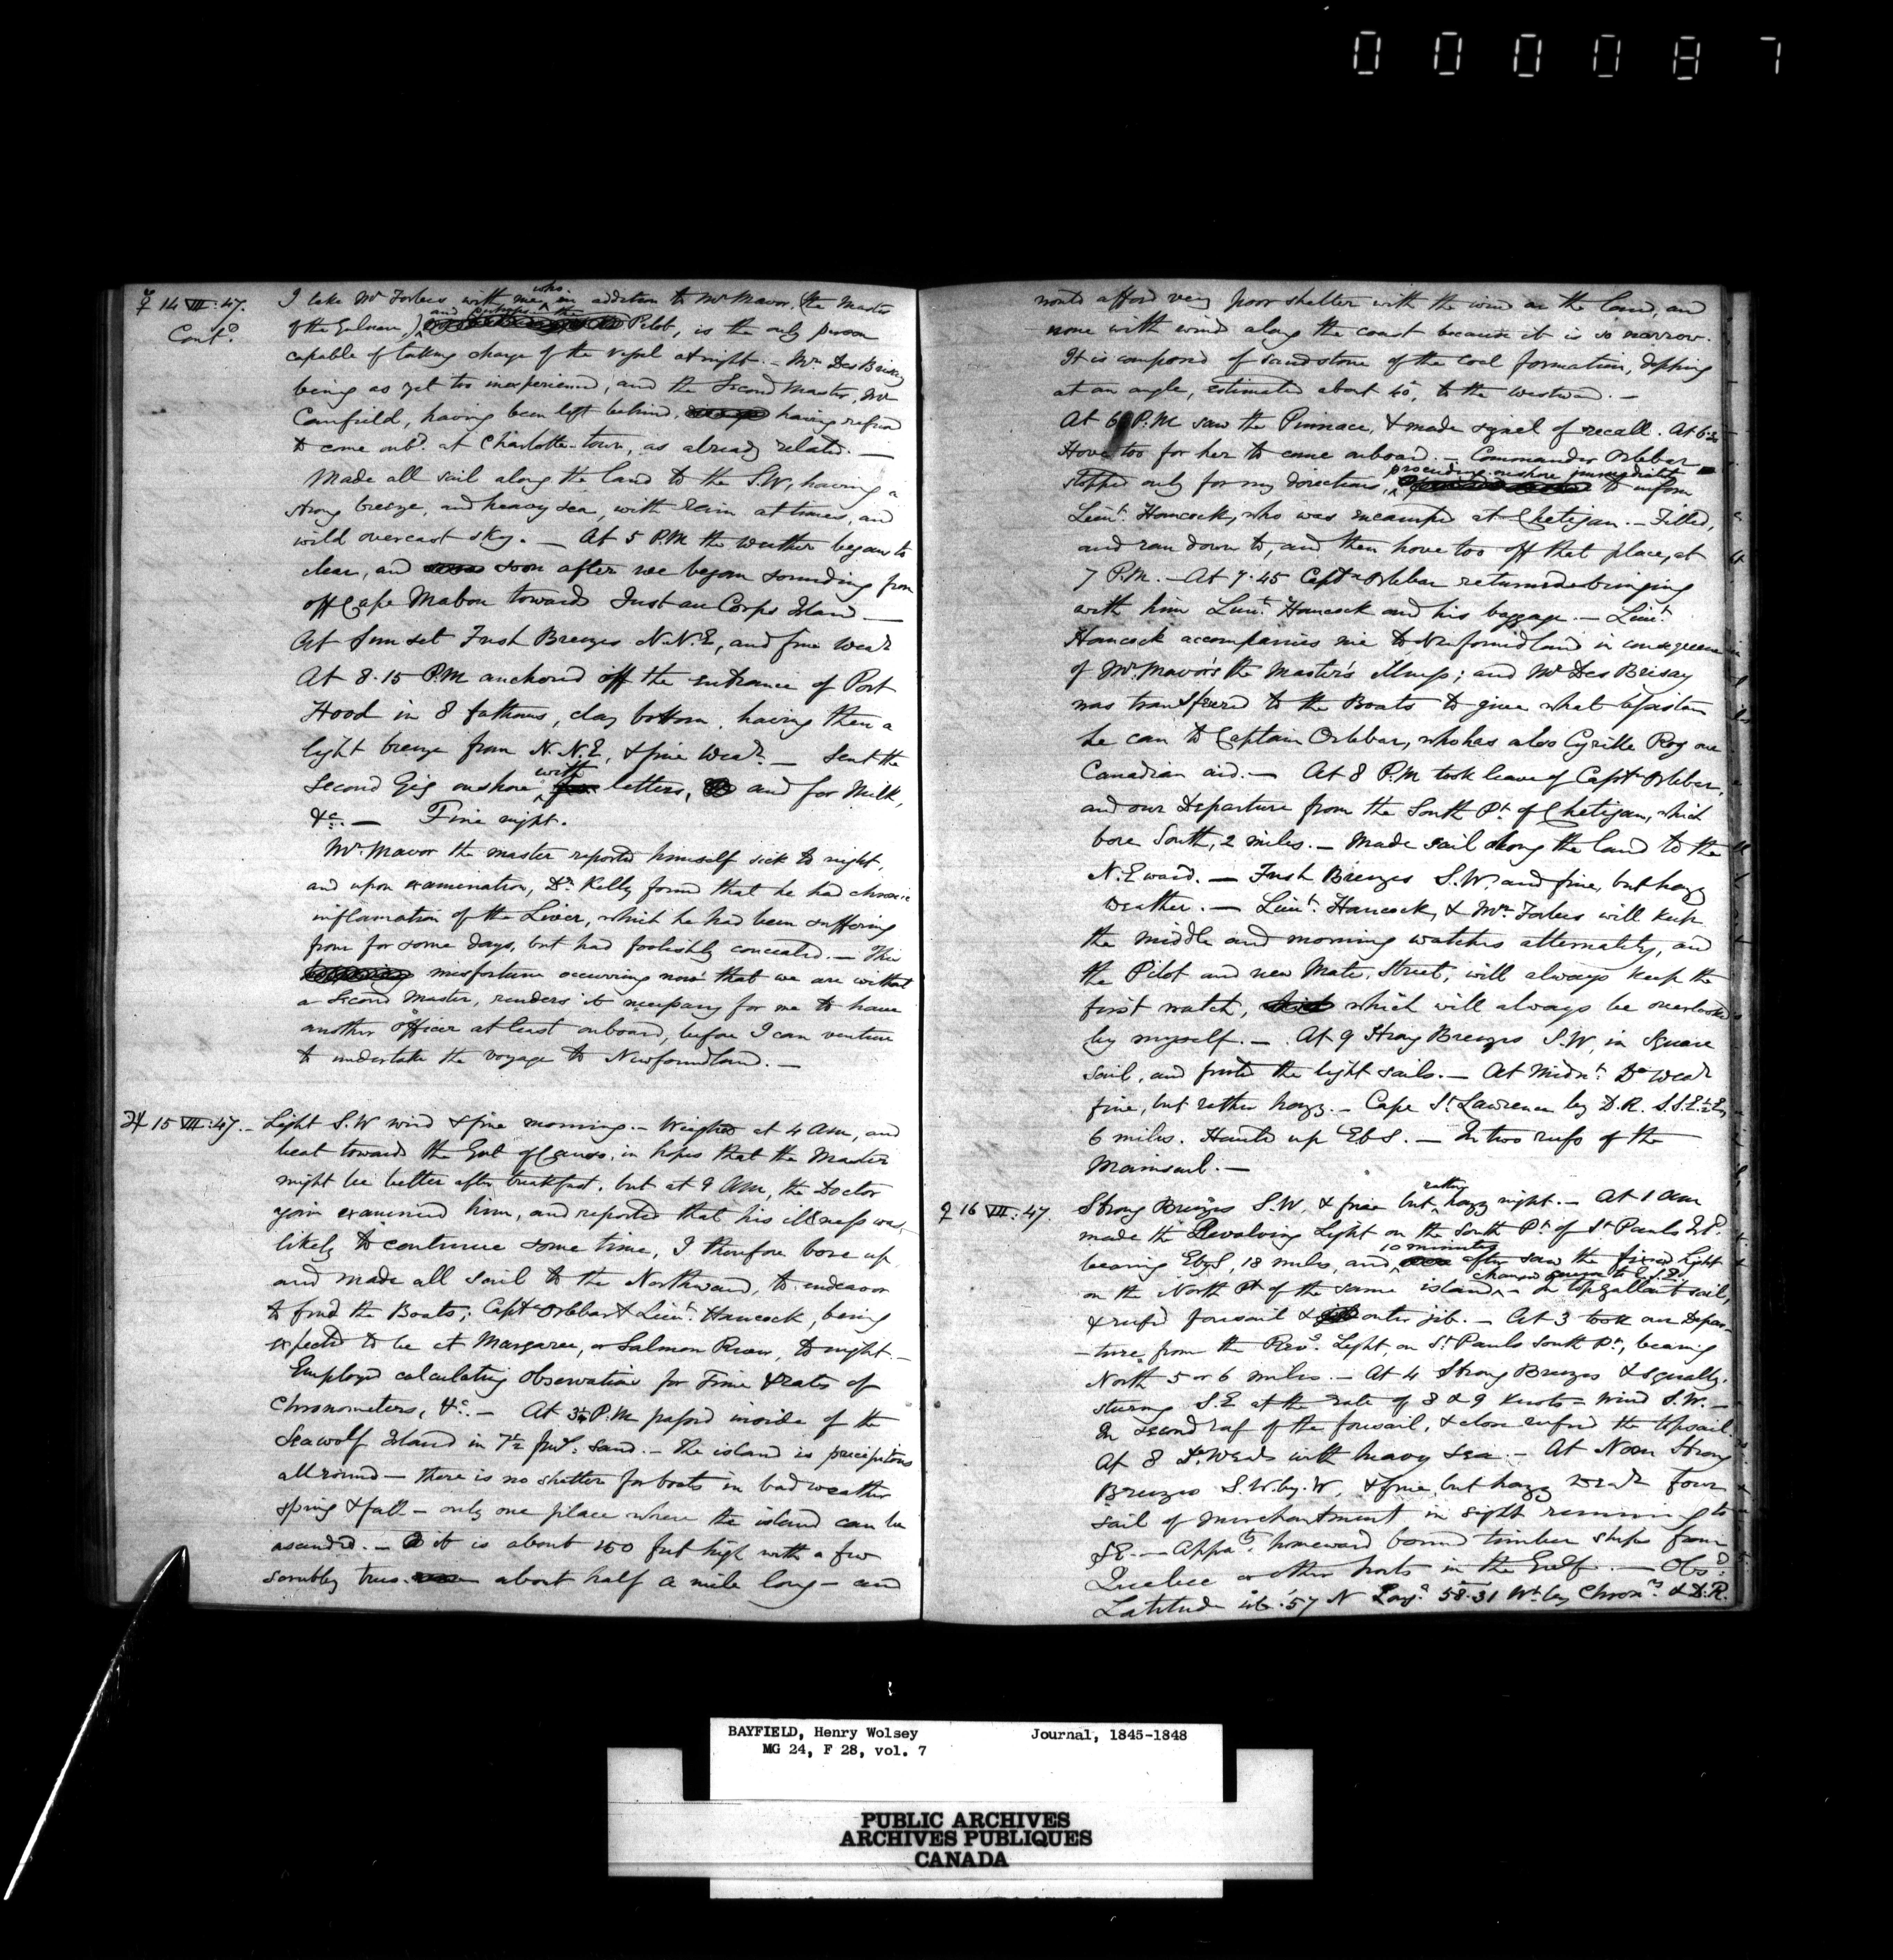 0 0 0 0 8 7
☿ 14 VII: 47.
Cont.d
I take Mr Forbes with me, who in addition to Mr Mavor, (the Master
of the Gulnare,) and perhaps the Pilot, is the only person
capable of taking charge of the vessel at night. - Mr. Des Brisay
being as yet too inexperienced, and the Second Master, Mr
Canfield, having been left behind, having refused
to come onbd. at Charlotte-town, as already related. —
Made all sail along the land to the S.W, having a
strong breeze, and heavy sea, with Rain at times, and
wild overcast sky. — At 5 P.M the weather began to
clear, and soon after we began sounding from
off Cape Mabou towards Just au Corps Island —
At Sunset Fresh Breezes N.N.E, and fine Wear
At 8.15 P.M anchored off the entrance of Port
Hood in 8 fathoms, clay bottom, having then a
light breeze from N.N.E, & fine Wear. — Sent the
Second Gig onshore with letters, and for Milk,
&c. — Fine night.
Mr. Mavor the master reported himself sick to night,
and upon examination, Dr. Kelly found that he had chronic
inflamation of the Liver, which he had been suffering
from for some days, but had foolishly concealed. — This
misfortune occurring now that we are without
a Second Master, renders it necessary for me to have
another officer at least onboard, before I can venture
to undertake the voyage to Newfoundland. —
♃ 15 VII: 47. -
Light S.W wind & fine morning. - Weighed at 4 AM, and
beat toward the Gut of Canso, in hopes that the Master
might be better after breakfast, but at 9 AM, the Doctor
again examined him, and reported that his illness was
likely to continue some time, I therefore bore up
and made all sail to the Northward, to endeavor
to find the Boats; Captn Orlebar & Lieut. Hancock, being
expected to be at Margaree, or Salmon River, to night. -
Employed calculating Observations for Time & Rates of
Chronometers, &c. - At 3¼ P.M passed inside of the
Seawolf Island in 7½ fms. sand. - The island is precipitous
all round — there is no shelter for boats in bad weather
spring & fall - only one place where the island can be
ascended. - it is about 150 feet high with a few
scrubby trees. about half a mile long - and
would afford very poor shelter with the wind on the land, and
none with winds along the coast because it is so narrow.
It is composed of sandstone of the coal formation, dipping
at an angle, estimated about 40°, to the westward. —
At 6 P.M saw the Pinnace, & made signal of recall. At 6.30
Hove too for her to come onboard. - Commander Orlebar
stopped only for my directions, proceeding onshore immediately to inform
Lieut. Hancock, who was encamped at Chetigan. - Filled,
and ran down to, and then hove too off that place, at
7 P.M. - At 7.45 Captn Orlebar returned bringing
with him Lieut. Hancock and his baggage. - Lieut.
Hancock accompanies me to Newfoundland in consequence
of Mr. Mavor's the Master's illness; and Mr Des Brisay
was transferred to the Boats to give what assistance
he can to Captain Orlebar, who has also Cyrille Roy our
Canadian aid. — At 8 P.M took leave of Captn Orlebar,
and our Departure from the South Pt. of Chetigan, which
bore South, 2 miles. - Made sail along the land to the
N.Eward. — Fresh Breezes S.W, and fine, but hazy
Weather. — Lieut. Hancock, & Mr. Forbes will keep
the middle and morning watches alternately, and
the Pilot and new Mate, Street, will always keep the
first watch, which will always be overlooked
by myself. — At 9 Strong Breezes S.W, in Square
Sail, and furled the light sails. — At Midnt. Do Wear
fine, but rather hazy. - Cape St. Lawrence by D.R. S.S.E½E
6 miles. Hauled up EbS. — In two reefs of the
Mainsail. —
♀ 16 VII: 47.
Strong Breezes S.W, & fine but rather hazy night. - At 1 AM
made the Revolving Light on the South Pt. of St Pauls Id.
bearing EbyS, 18 miles, and 10 minutes after saw the fixed Light
on the North Pt of the same island, - In topgallant sail,
& reefed foresail & outer jib. - At 3 took our Depar-
-ture, from the Revg. Light, on St Pauls South Pt., bearing
North 5 or 6 miles. - At 4 Strong Breezes & squally.
steering S.E at the rate of 8 & 9 Knots - Wind S.W. —
In second reef of the foresail, & close reefed the topsail.
At 8 Do Wear with heavy Sea. - At Noon Strong
Breezes S.W.by.W, & fine, but hazy Wear four
sail of merchantment in sight running to
SE. — Appaly. homeward bound timber ships from
Quebec or other ports in the Gulf. — Obsd.
Latitude 46.57 N Longe. 58.31 Wt. by Chronrs. & D.R.
BAYFIELD, Henry Wolsey Journal, 1845-1848
MG 24, F 28, vol. 7
PUBLIC ARCHIVES
ARCHIVES PUBLIQUES
CANADA